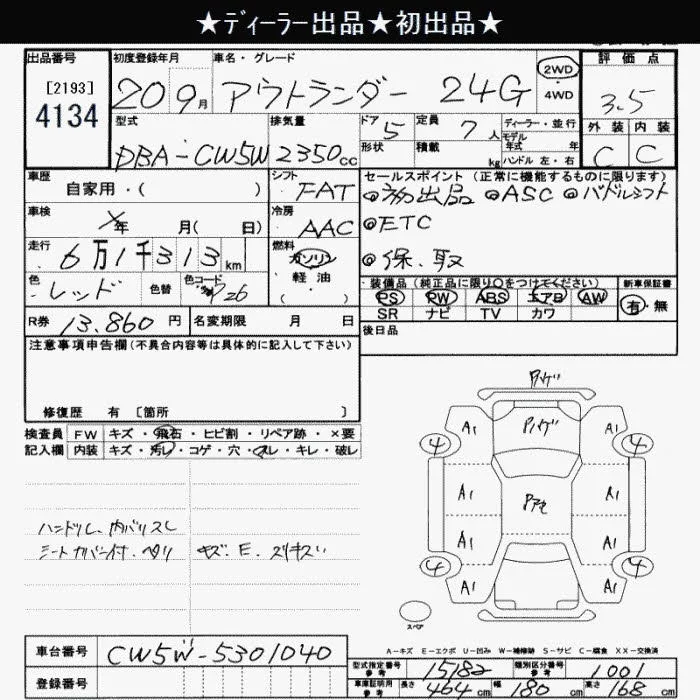 ★ディーラー出品★初出品★
出品番号 初度登録年月 車名・グレード 評価点
[2193]
4134
20 9月 アウトランダー 24G 2WD・4WD 3.5
型式 排気量 ドア 5 定員 7人 ディーラー・並行 外装 内装
モデル年式 年
DBA-CW5W 2350cc 形状 積載 kg ハンドル 左・右 C C
車歴 シフト セールスポイント(正常に機能するものに限ります)
自家用・( ) FAT ◎初出品 ◎ASC ◎パドルシフト
車検 冷房 ◎ETC
年 月( 日) AAC
走行 燃料 ◎保、取
6万1千313km ガソリン
軽油
( )
色 色替 色コード 装備品(純正品に限り○をつけてください) 新車保証書
レッド P26 PS PW ABS エアB AW 有・無
SR ナビ TV カワ
R券 13,860円 名変期限 月 日 後日品
注意事項申告欄(不具合内容等は具体的に記入して下さい)
修復歴 有 [箇所 ]
検査員 FW キズ・飛石・ヒビ割・リペア跡・×要
記入欄 内装 キズ・汚レ・コゲ・穴・スレ・キレ・破レ
A1 A1
4 4
A1 A1
A1 A1
4 4
A1 A1
スペア
A-キズ E-エクボ U-凹み W-補修跡 S-サビ C-腐食 XX-交換済
車台番号 CW5W-5301040
型式指定番号 参考 15182 類別区分番号 参考 1001
登録番号 車庫証明用 参考 長さ 464cm 幅 180cm 高さ 168cm